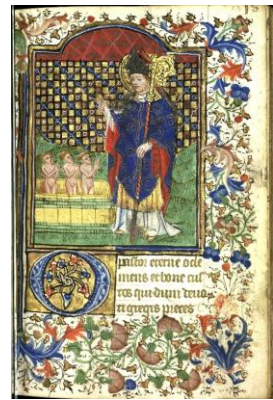 O
pastor eterne o cle
mens et bone cus
tos qui dum deuo
ti gregis preces